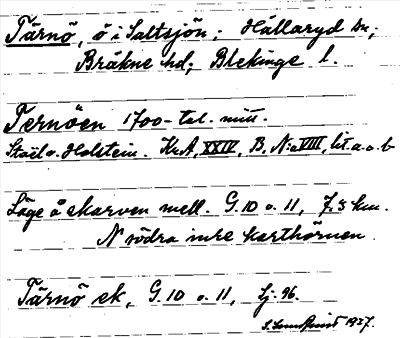 Tärnö, ö i Saltsjön; Hällaryd sn;
Bräkne hd; Blekinge l.
Ternöen 1700-tal. mitt.
Staël v. Holstein. Kr.A, XXIV, B. N:o VIII, lit a.o.b
Läge å skarven mell. G.10 o. 11, 7,5 km.
N södra inre karthörnen.
Tärnö sk, G.10 o. 11, Lj. 96.
1927.